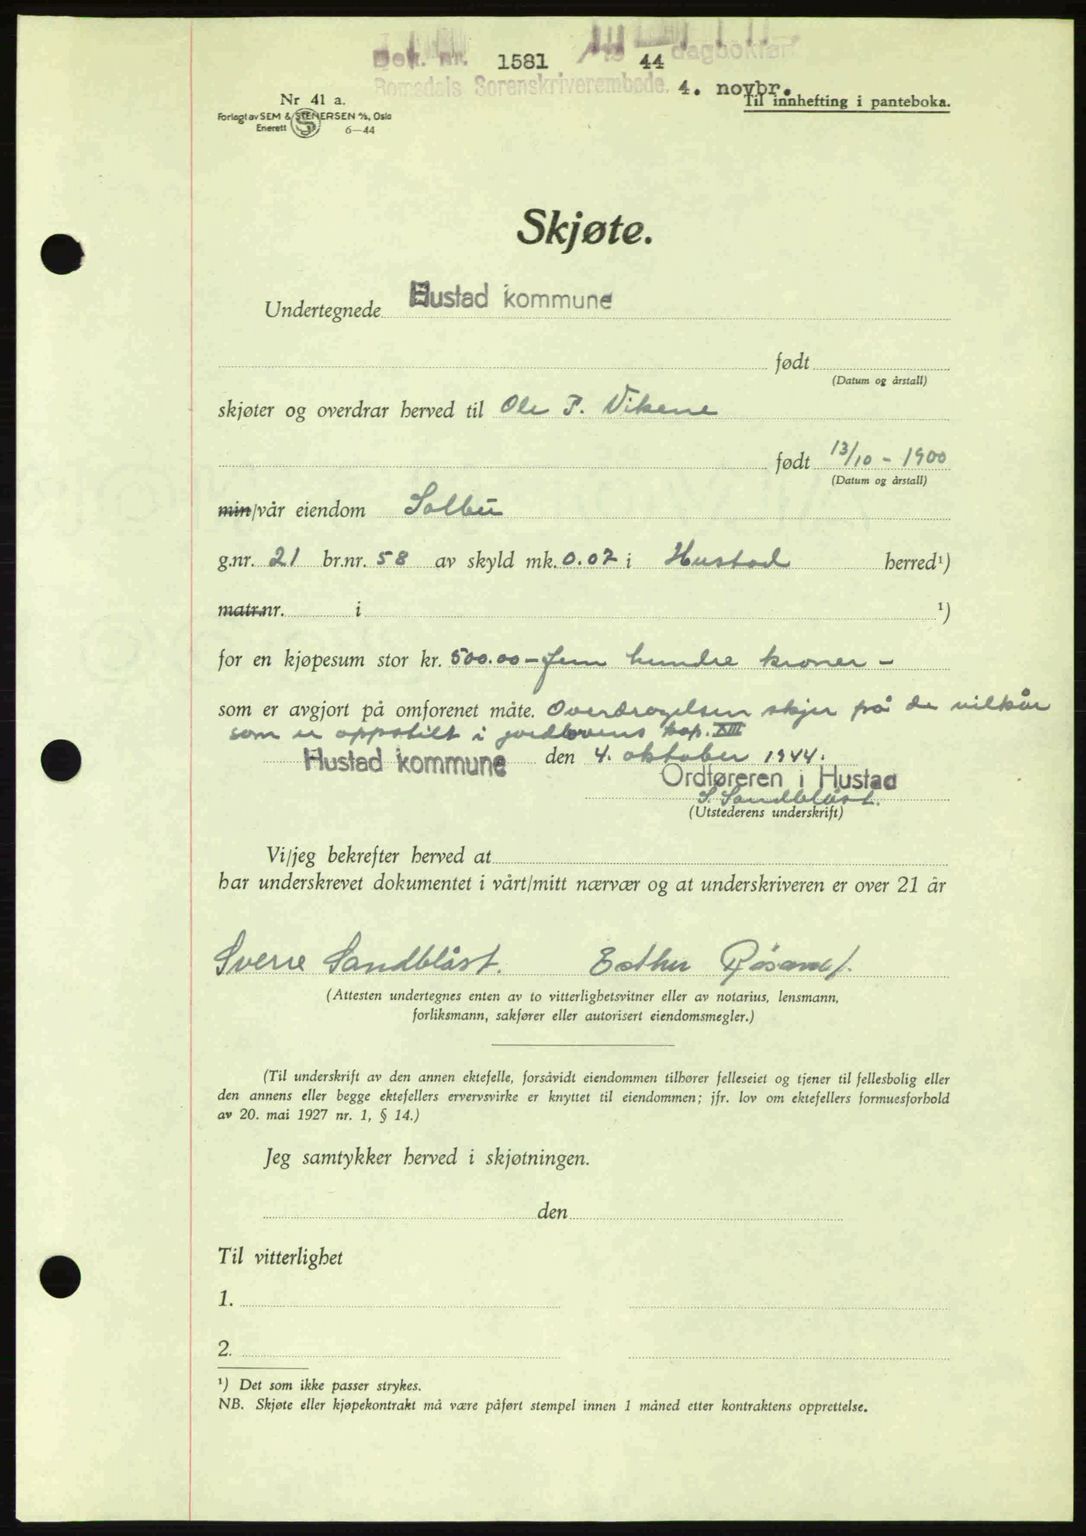 Dok. nr. 1581 / 19 44 dagboken
Romsdals Sorenskriverembede. 4. novbr.
Nr 41 a.
Til innhefting i panteboka.
Forlagt av SEM & STENERSEN A/S, Oslo
Enerett S 6—44
Skjøte.
Undertegnede Hustad kommune
født
(Datum og årstall)
skjøter og overdrar herved til Ole P. Vikene
født 13/10 - 1900
(Datum og årstall)
min/vår eiendom Solbu
g.nr. 21 br.nr. 58 av skyld mk. 0.07 i Hustad herred¹)
matr.nr. i ¹)
for en kjøpesum stor kr. 500.00 - fem hundre kroner -
som er avgjort på omforenet måte. Overdragelsen skjer på de vilkår
som er oppstilt i jordlovens kap. XIII
Hustad kommune den 4. oktober 1944.
Ordføreren i Hustad
S. Sandblåst.
(Utstederens underskrift)
Vi/jeg bekrefter herved at
har underskrevet dokumentet i vårt/mitt nærvær og at underskriveren er over 21 år
Sverre Sandblåst. Esther Røsand.
(Attesten undertegnes enten av to vitterlighetsvitner eller av notarius, lensmann,
forliksmann, sakfører eller autorisert eiendomsmegler.)
(Til underskrift av den annen ektefelle, forsåvidt eiendommen tilhører felleseiet og tjener til fellesbolig eller
den annens eller begge ektefellers ervervsvirke er knyttet til eiendommen; jfr. lov om ektefellers formuesforhold
av 20. mai 1927 nr. 1, § 14.)
Jeg samtykker herved i skjøtningen.
den
Til vitterlighet
1.
2.
¹) Det som ikke passer strykes.
NB. Skjøte eller kjøpekontrakt må være påført stempel innen 1 måned etter kontraktens opprettelse.